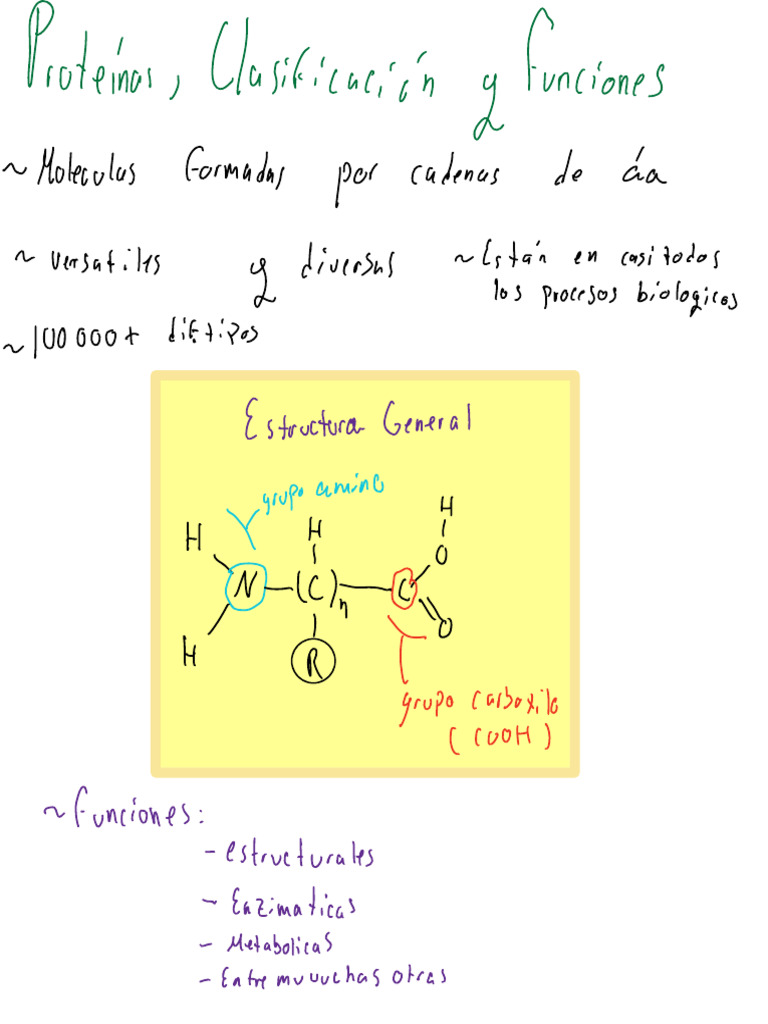 Proteínas, Clasificación y Funciones
~ Moleculas formadas por cadenas de áa
~ versatiles y diversas
~ Están en casi todos
los procesos biologicos
~ 100 000+ de tipos
Estructura General
grupo amino
H
H
H
O
N-(C)n-C
O
H
R
grupo carboxilo
(COOH)
~ Funciones:
- estructurales
- Enzimaticas
- Metabolicas
- Entre muuuchas otras